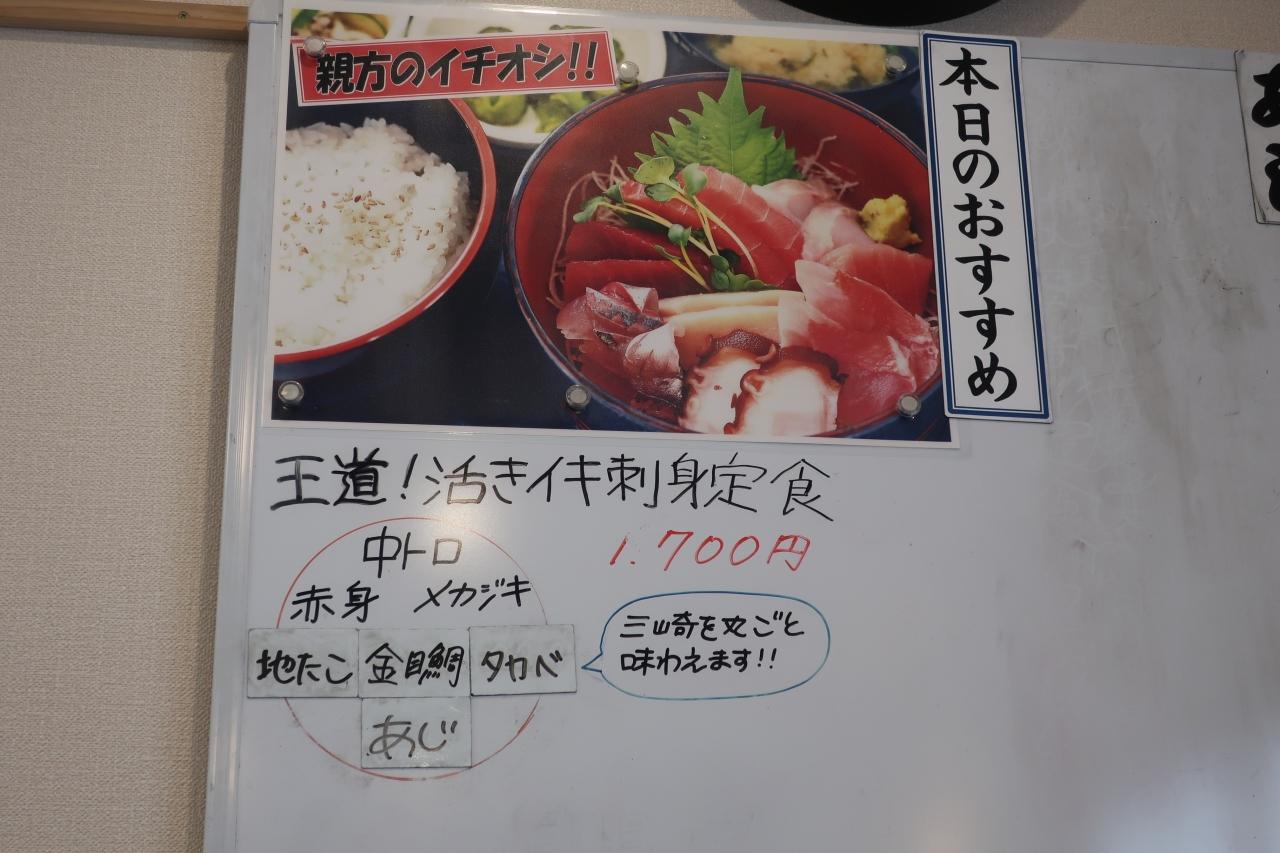 親方のイチオシ!!
本日のおすすめ
王道!活きイキ刺身定食
1.700円
中トロ
赤身 メカジキ
地たこ 金目鯛 タカベ
あじ
三崎を丸ごと
味わえます!!